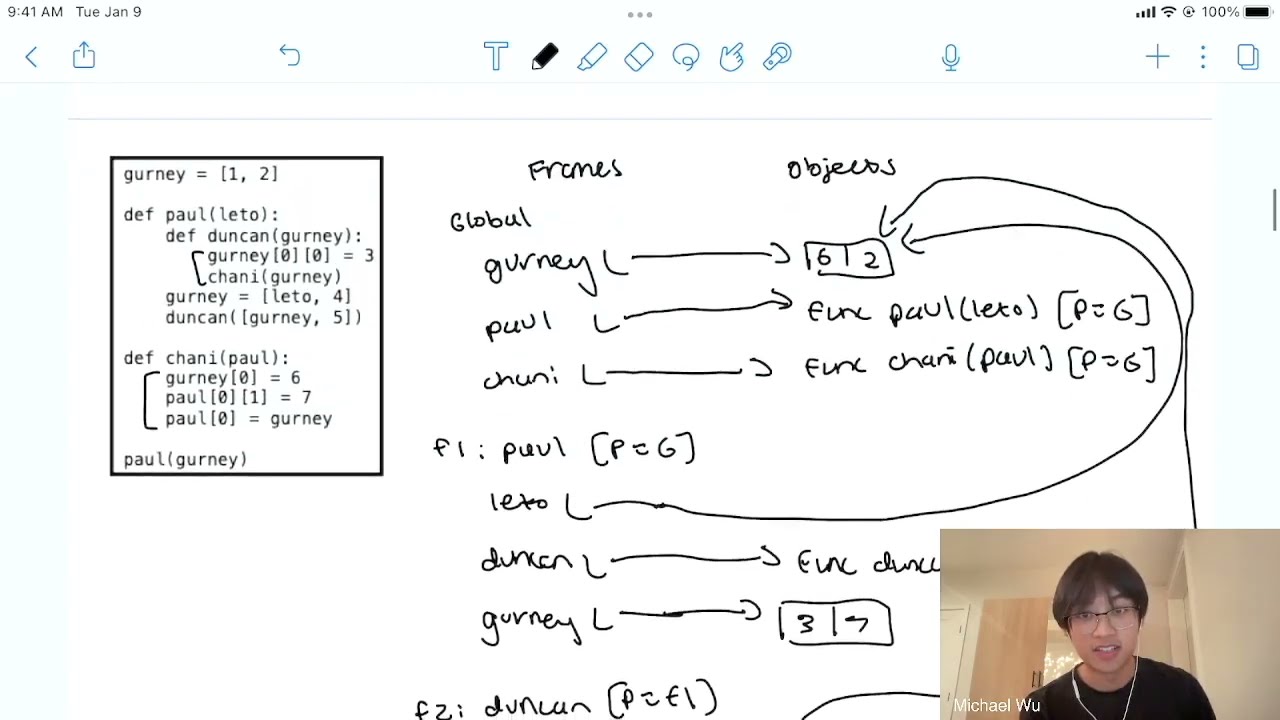 9:41 AM Tue Jan 9
100%
gurney = [1, 2]
def paul(leto):
def duncan(gurney):
gurney[0][0] = 3
chani(gurney)
gurney = [leto, 4]
duncan([gurney, 5])
def chani(paul):
gurney[0] = 6
paul[0][1] = 7
paul[0] = gurney
paul(gurney)
Frames Objects
Global
gurney 6 2
paul func paul(leto) [P=G]
chani func chani(paul) [P=G]
f1: paul [P=G]
leto
duncan func
gurney 3 7
f2: duncan [P=f1]
Michael Wu